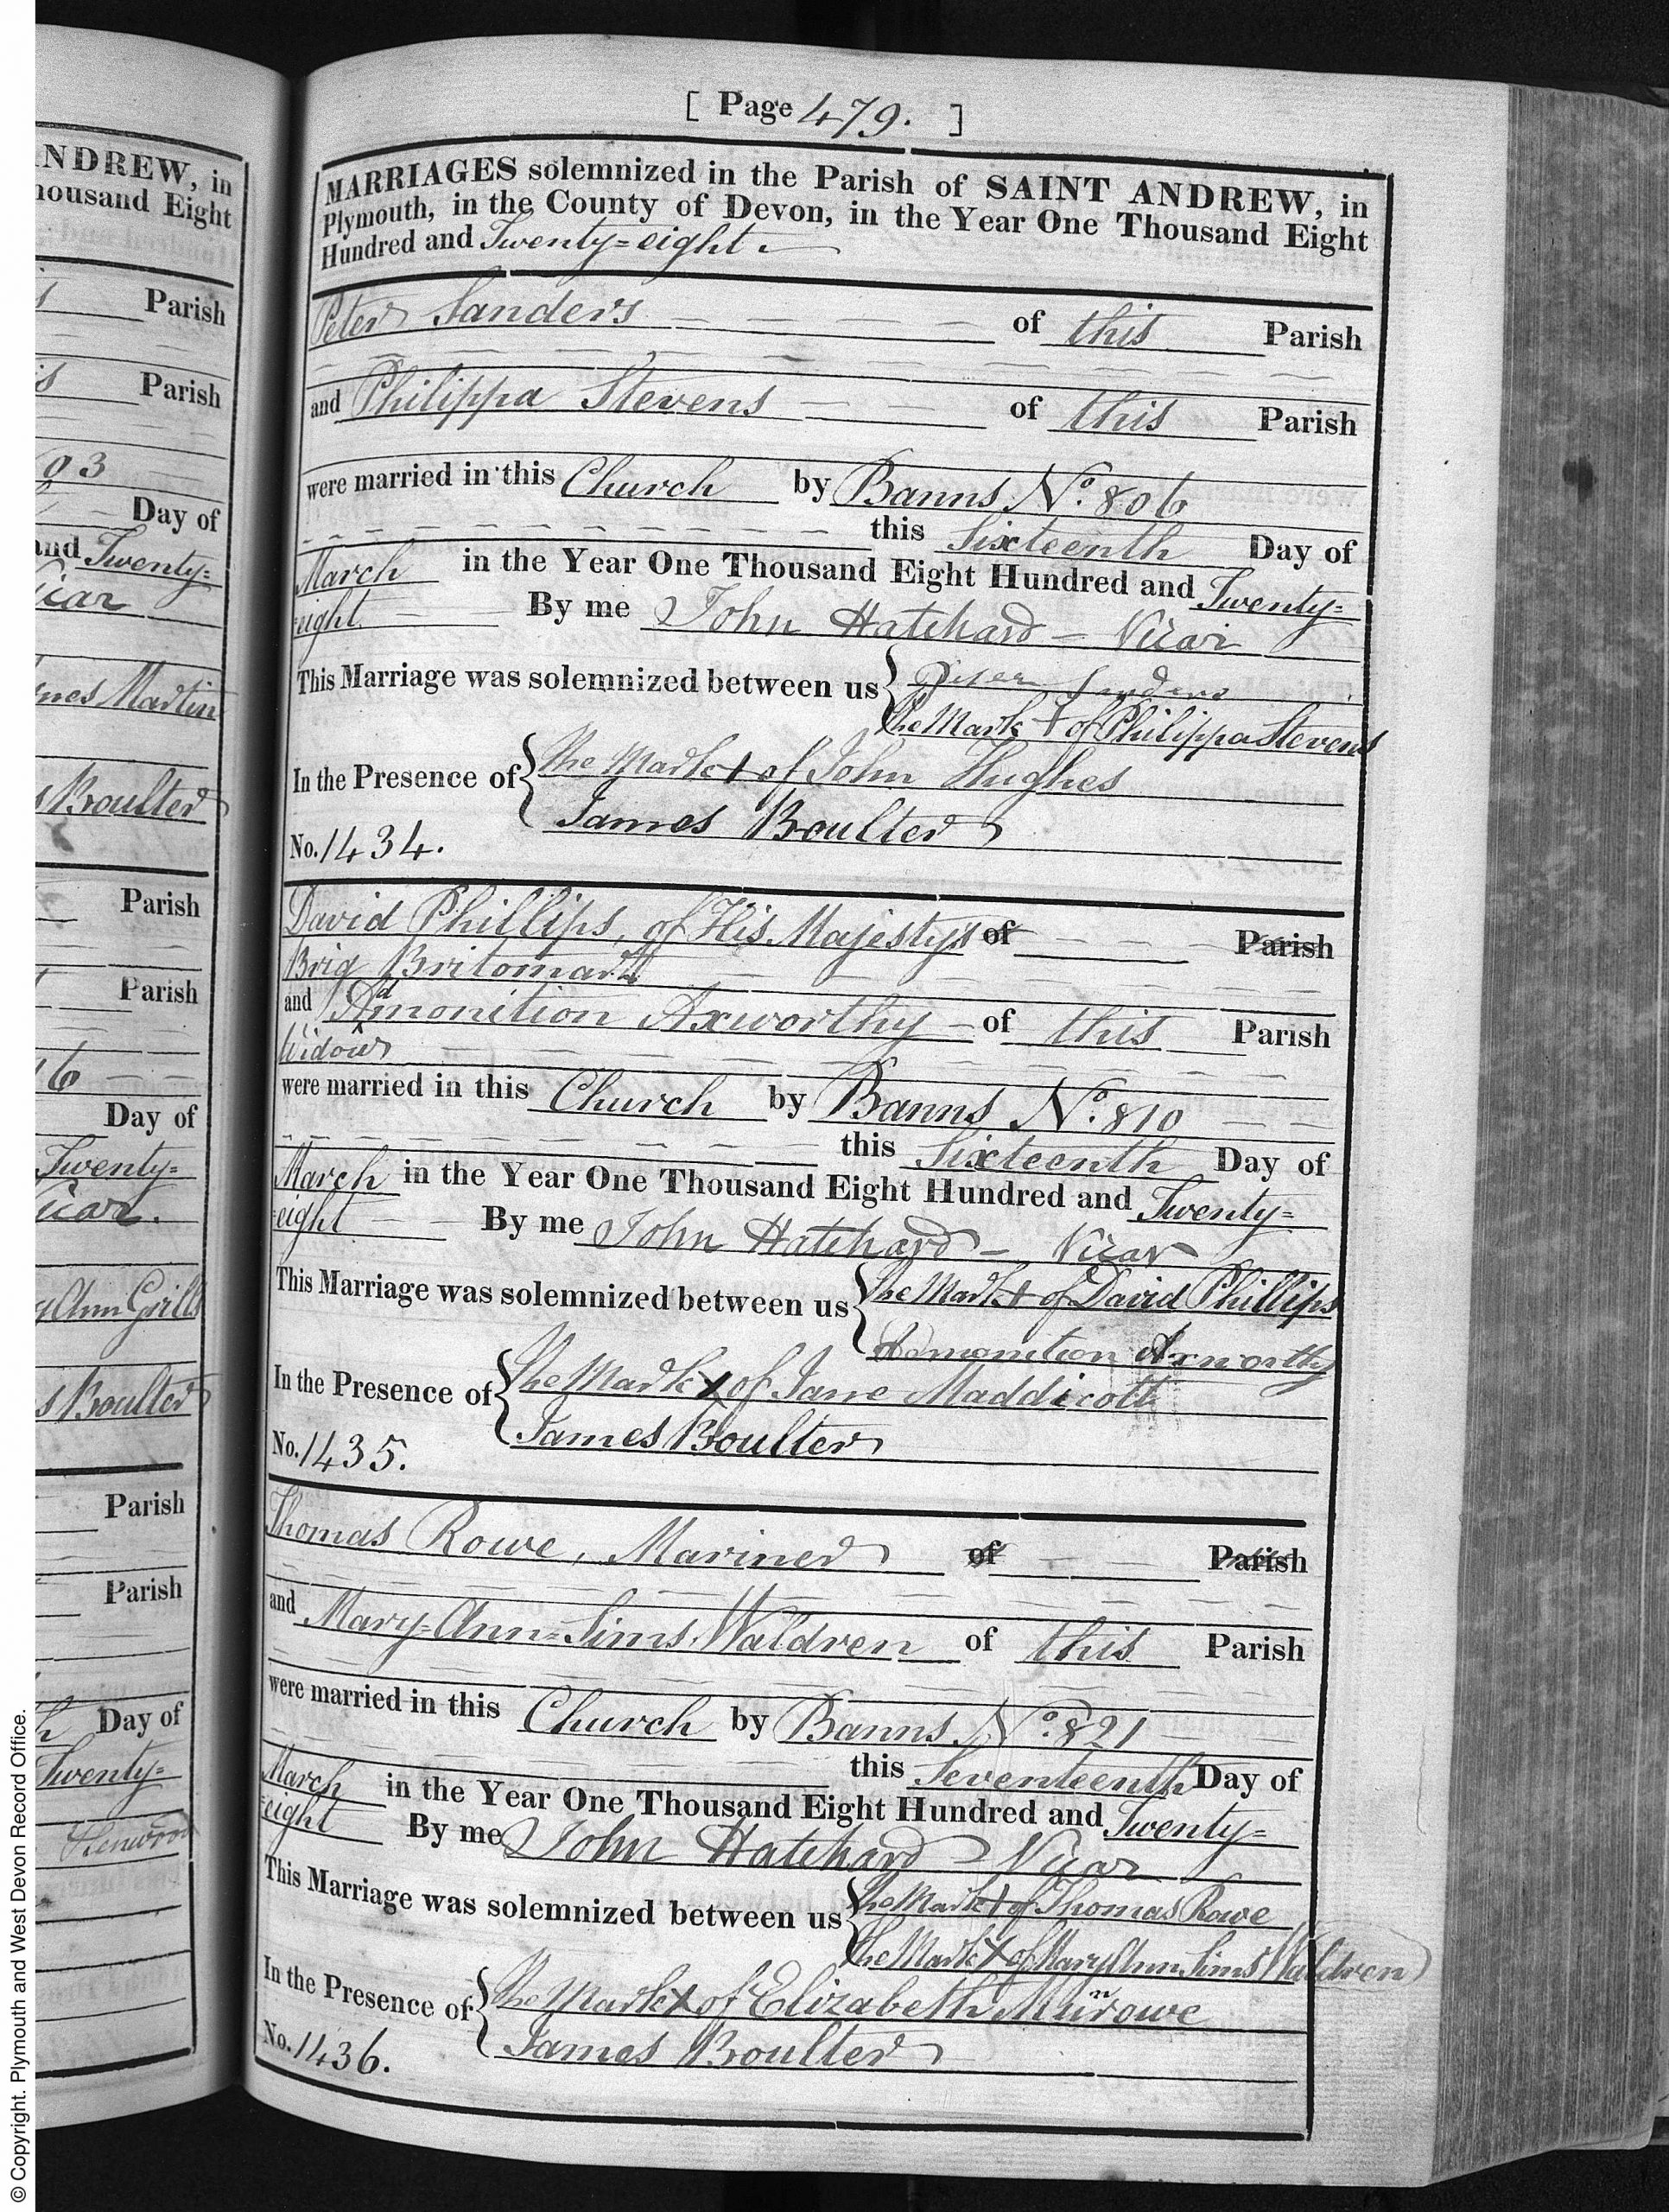 [ Page 479. ]
MARRIAGES solemnized in the Parish of SAINT ANDREW, in
Plymouth, in the County of Devon, in the Year One Thousand Eight
Hundred and Twenty=eight.
Peter Sanders of this Parish
and Philippa Stevens of this Parish
were married in this Church by Banns No. 806
this Sixteenth Day of
March in the Year One Thousand Eight Hundred and Twenty=
eight By me John Hatchard - Vicar
This Marriage was solemnized between us { Peter Sanders
The Mark + of Philippa Stevens
In the Presence of { The Mark + of John Hughes
James Boulter
No. 1434.
David Phillips, of His Majestys of Parish
Brig Britomart
and Admonition Axworthy of this Parish
Widow
were married in this Church by Banns No. 810
this Sixteenth Day of
March in the Year One Thousand Eight Hundred and Twenty=
eight By me John Hatchard - Vicar
This Marriage was solemnized between us { The Mark + of David Phillips
Admonition Axworthy
In the Presence of { The Mark X of Jane Maddicott
James Boulter
No. 1435.
Thomas Rowe, Mariner of Parish
and Mary=Ann=Sims Waldren of this Parish
were married in this Church by Banns No. 821
this Seventeenth Day of
March in the Year One Thousand Eight Hundred and Twenty=
eight By me John Hatchard Vicar
This Marriage was solemnized between us { The Mark + of Thomas Rowe
The Mark X of Mary Ann Sims Waldren
In the Presence of { The Mark X of Elizabeth
James Boulter
No. 1436.
NDREW, in
housand Eight
Parish
Parish
03
Day of
and Twenty=
icar
nes Martin
s Boulter
Parish
Parish
16
Day of
Twenty=
icar.
y Ann Grills
s Boulter
Parish
Parish
h Day of
Twenty=
Henwood
© Copyright. Plymouth and West Devon Record Office.